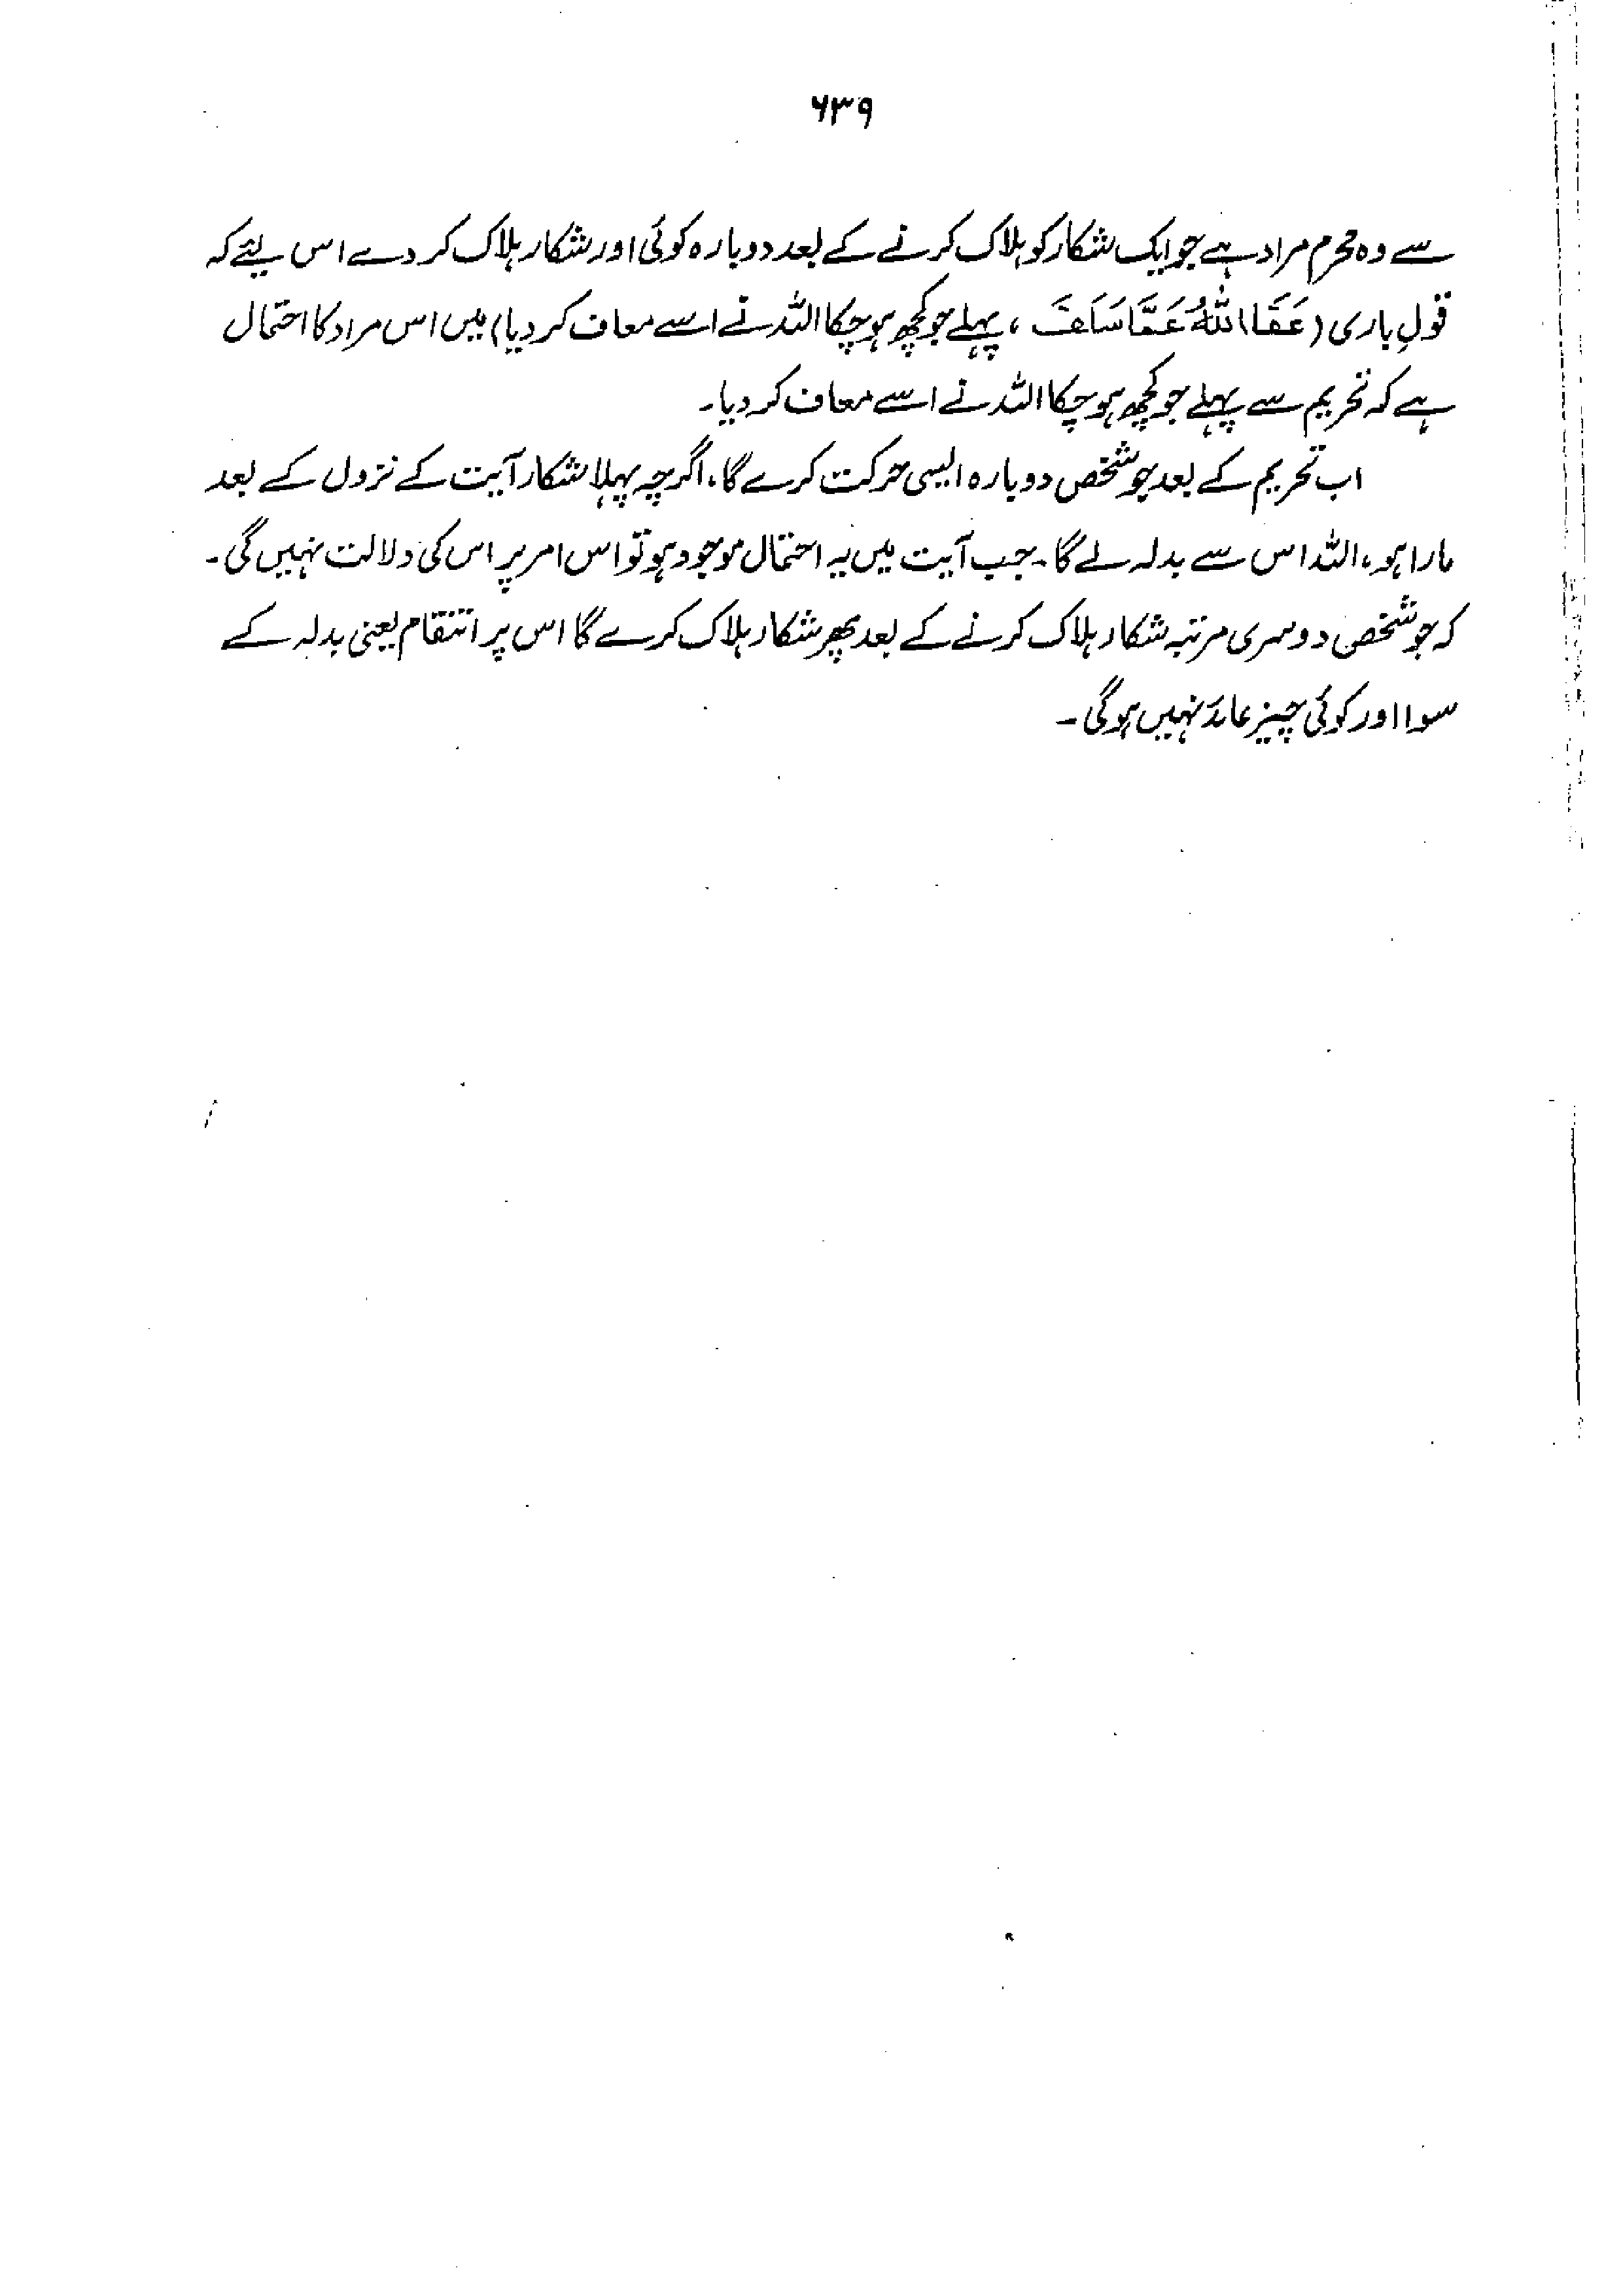 ۶۳۹
سے وہ محرم مراد ہے جو ایک شکار کو ہلاک کرنے کے بعد دوبارہ کوئی اور شکار ہلاک کر دے اس لیئے کہ
قولِ باری (عَفَا اللّٰهُ عَمَّا سَلَفَ ، پہلے جو کچھ ہو چکا اللہ نے اسے معاف کر دیا) میں اس مراد کا احتمال
ہے کہ تحریم سے پہلے جو کچھ ہو چکا اللہ نے اسے معاف کر دیا۔
اب تحریم کے بعد جو شخص دوبارہ ایسی حرکت کرے گا، اگرچہ پہلا شکار آیت کے نزول کے بعد
مارا ہو، اللہ اس سے بدلہ لے گا۔ جب آیت میں یہ احتمال موجود ہو تو اس امر پر اس کی دلالت نہیں گی۔
کہ جو شخص دوسری مرتبہ شکار ہلاک کرنے کے بعد پھر شکار ہلاک کرے گا اس پر انتقام یعنی بدلہ کے
سوا اور کوئی چیز عائد نہیں ہو گی۔